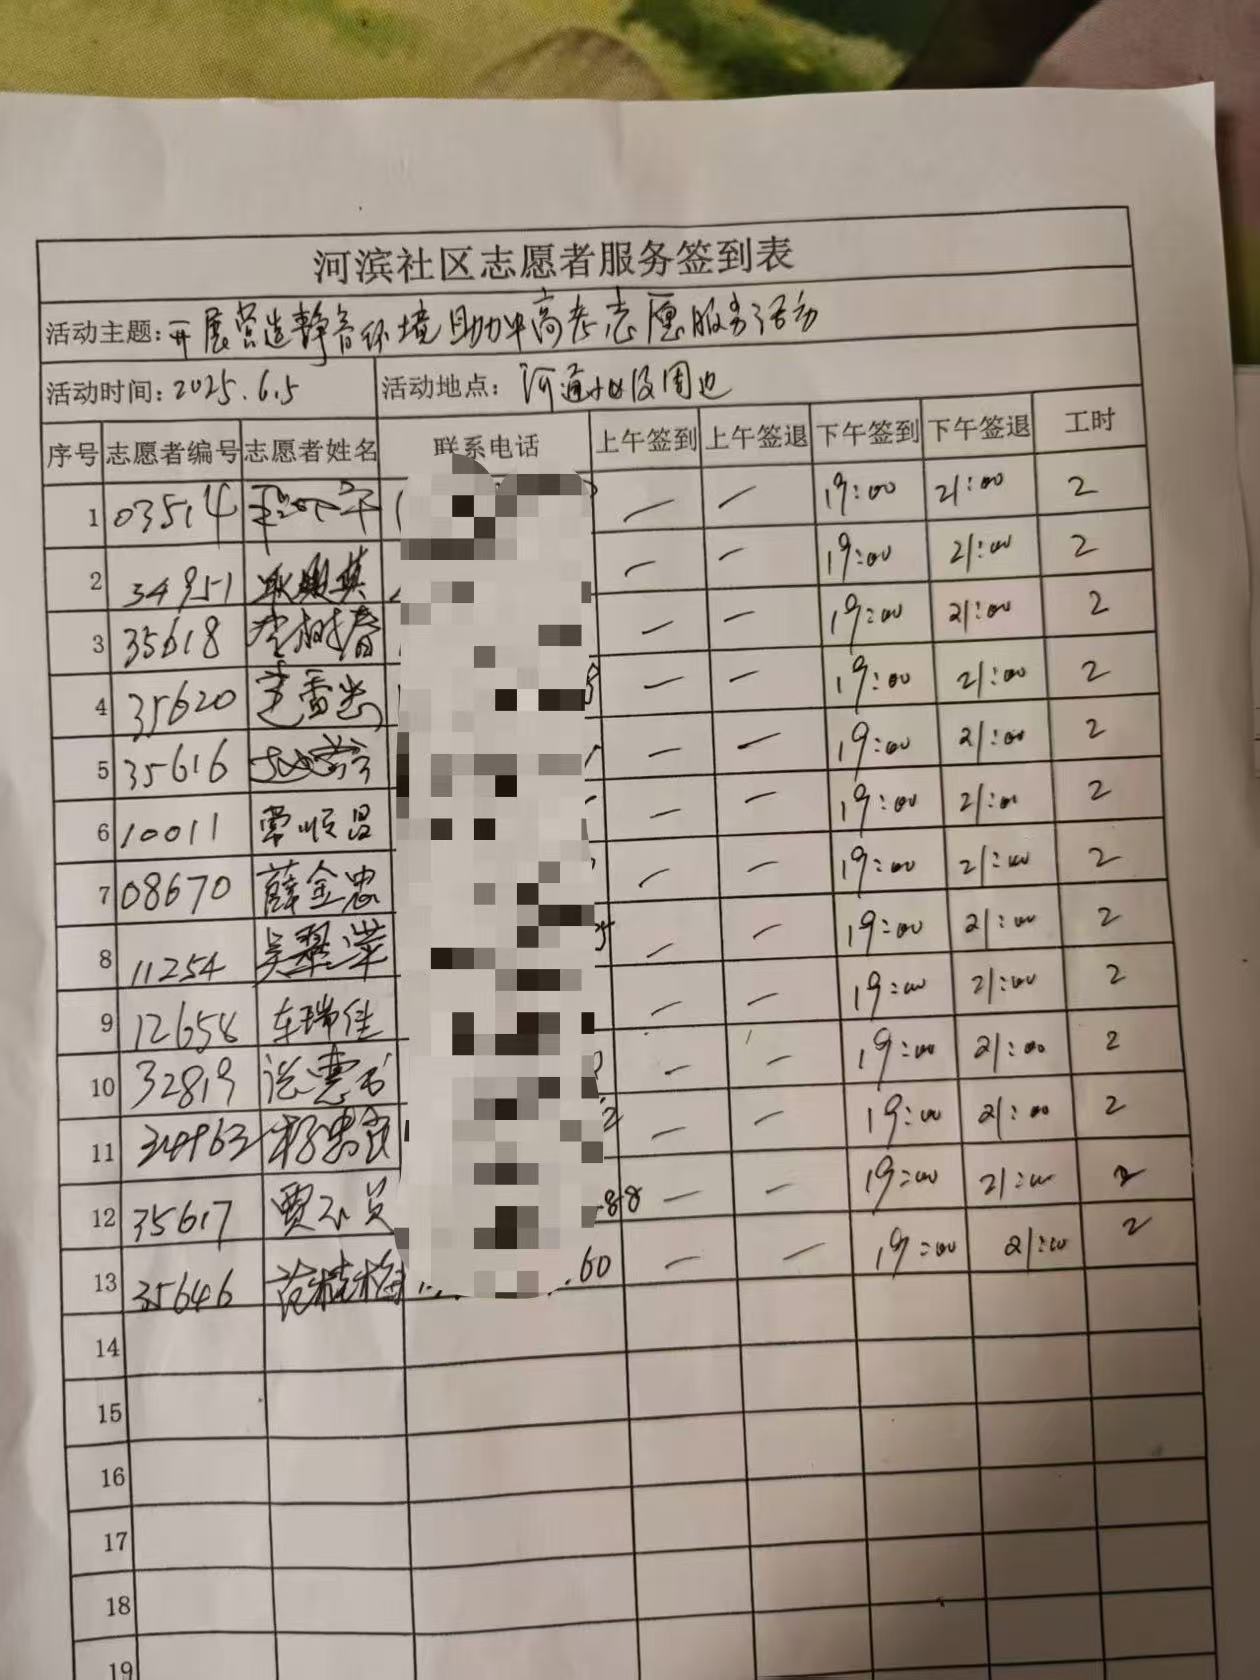 河滨社区志愿者服务签到表
活动主题：开展营造静音环境助力中高考志愿服务活动
活动时间：2025.6.5 活动地点：河道小区及周边
序号 志愿者编号 志愿者姓名 联系电话 上午签到 上午签退 下午签到 下午签退 工时
1 03514 — — 19:00 21:00 2
2 34951 — — 19:00 21:00 2
3 35618 李树春 — — 19:00 21:00 2
4 35620 — — 19:00 21:00 2
5 35616 — — 19:00 21:00 2
6 10011 常顺昌 — — 19:00 21:00 2
7 08670 薛金忠 — — 19:00 21:00 2
8 11254 吴翠萍 — — 19:00 21:00 2
9 12658 车瑞佳 — — 19:00 21:00 2
10 32819 — — 19:00 21:00 2
11 34963 — — 19:00 21:00 2
12 35617 贾 88 — — 19:00 21:00 2
13 35646 范桂梅 60 — — 19:00 21:00 2
14
15
16
17
18
19